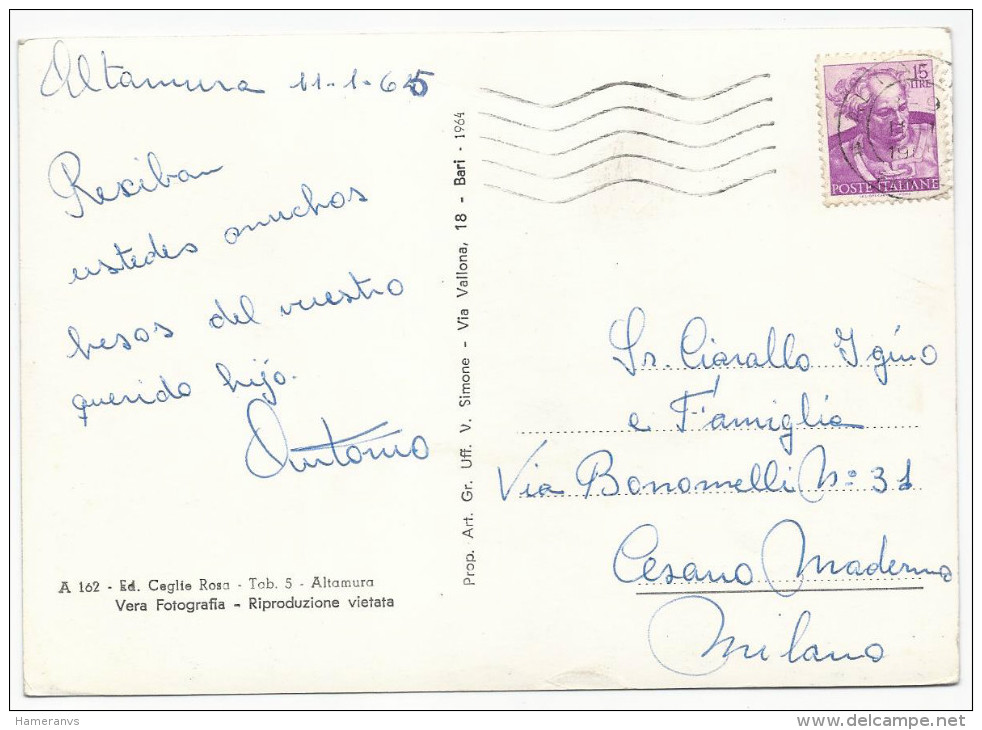 Altamura 11-1-65
Reciban
ustedes muchos
besos del vuestro
querido hijo.
Antonio
A 162 - Ed. Ceglie Rosa - Tab. 5 - Altamura
Vera Fotografia - Riproduzione vietata
Prop. Art. Gr. Uff. V. Simone - Via Vallona, 18 - Bari - 1964
15
LIRE
POSTE ITALIANE
Sr. Ciarallo Igino
e Famiglia
Via Bonomelli N: 31
Cesano Maderno
Milano
Hameranvs
delcampe.net